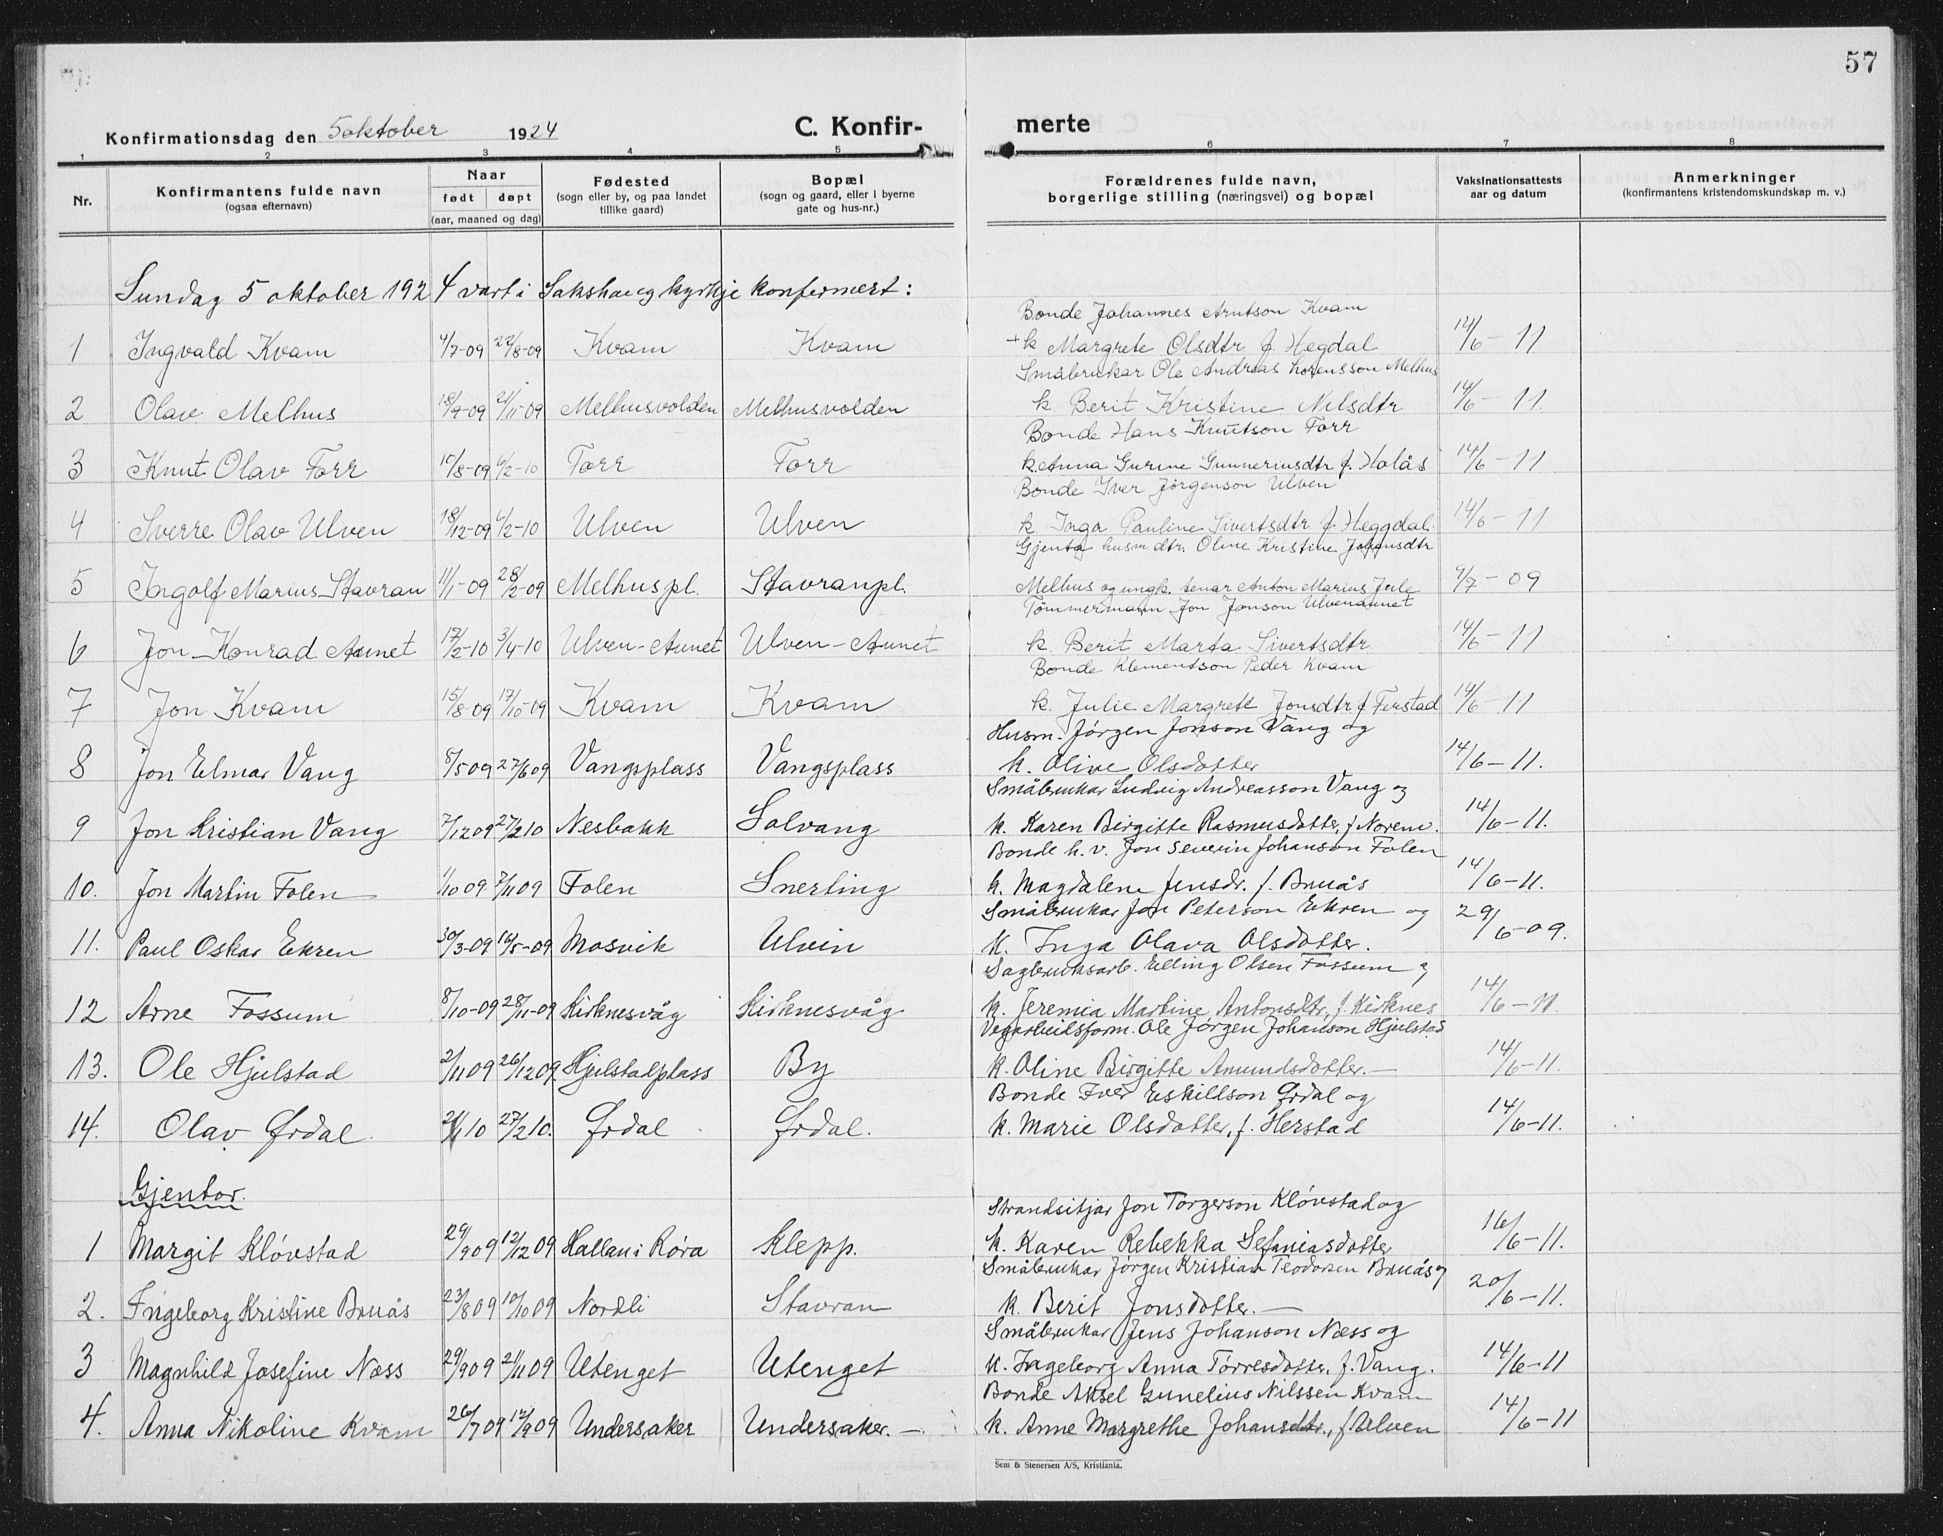 57
Konfirmationsdag den 5 oktober 1924 C. Konfir- merte
1 2 3 4 5 6 7 8
Nr. Konfirmantens fulde navn (ogsaa efternavn) Naar født døpt (aar, maaned og dag) Fødested (sogn eller by, og paa landet tillike gaard) Bopæl (sogn og gaard, eller i byerne gate og hus-nr.) Forældrenes fulde navn, borgerlige stilling (næringsvei) og bopæl Vaksinationsattests aar og datum Anmerkninger (konfirmantens kristendomskundskap m. v.)
Sundag 5 oktober 1924 vart i Sakshaug kyrkje konfermert:
Bonde Johannes Arntson Kvam
1 Ingvald Kvam 4/7-09 22/8-09 Kvam Kvam + k Margrete Olsdtr f. Hegdal 14/6-11
Småbrukar Ole Andreas Lorensson Melhus
2 Olav Melhus 18/9-09 21/11-09 Melhusvolden Melhusvolden k Berit Kristine Nilsdtr 14/6-11.
Bonde Hans Knutson Forr
3 Knut Olav Forr 10/8-09 6/2-10 Forr Forr k. Anna Gurine Gunneriusdtr f. Holås 14/6-11
Bonde Iver Jørgenson Ulven
4 Sverre Olav Ulven 18/12-09 6/2-10 Ulven Ulven k Inga Pauline Sivertsdtr f. Heggdal. 14/6-11
Gjenta husm dtr. Oline Kristine Johansdtr
5 Ingolf Marius Stavran 11/1-09 28/2-09 Melhuspl. Stavranpl. Melhus og ungk. tenar Anton Marius Jule 9/7-09
Tømmermann Jon Jonson Ulvenaunet
6 Jon Konrad Aunet 17/2-10 3/4-10 Ulven-Aunet Ulven-Aunet k. Berit Marta Sivertsdtr 14/6-11
Bonde Klementson Peder Kvam
7 Jon Kvam 15/8-09 17/10-09 Kvam Kvam k. Julie Margrete Jonsdtr f Ferstad 14/6-11
Husm. Jørgen Jonson Vang og
8 Jon Elmar Vang 8/5 09 27/6 09 Vangsplass Vangsplass k. Olive Olsdotter 14/6-11.
Småbrukar Ludvig Andreasson Vang og
9 Jon Kristian Vang 7/12 09 27/2 10 Nesbakk Solvang k. Karen Birgitte Rasmusdotter, f Norem. 14/6-11.
Bonde h. v. Jon Severin Johanson Folen
10. Jon Martin Folen 1/10 09 7/11 09 Folen Snerting k. Magdalene Jensdr. f. Bruås 14/6-11.
Småbrukar Jon Peterson Ekren og
11. Paul Oskar Ekren 30/3-09 16/5-09 Mosvik Ulvin k. Inga Olava Olsdotter. 29/6-09.
Sagbruksarb. Elling Olsen Fossum og
12 Arne Fossum 8/10-09 28/11-09 Kirknesvåg Kirknesvåg k. Jeremia Martine Antonsdtr, f. Kirknes 14/6-11.
Vegarbeidsform. Ole Jørgen Johanson Hjulstad
13. Ole Hjulstad 2/11 09 26/12 09 Hjulstadplass By k. Oline Birgitte Amundsdotter.- 14/6-11.
Bonde Iver Eskildson Ørdal og
14. Olav Ørdal 10 27/2 10. Ørdal Ørdal. k. Marie Olsdotter, f. Herstad 14/6-11.
Gjentor.
Strandsitjar Jon Torgerson Kløvstad og
1 Margit Kløvstad 29/9 09 12/12 09 Hallan i Røra Klepp. k. Karen Rebekka Sefaniasdotter 16/6-11.
Småbrukar Jørgen Kristian Teodorsen Bruås og
2. Ingeborg Kristine Bruås 23/8 09 10/10 09 Nordli Stavran k. Berit Jonsdotter.- 20/6-11.
Småbrukar Jens Johanson Næss og
3 Magnhild Josefine Næss 29/9 09 21/11 09 Utenget Utenget k. Ingeborg Anna Tørresdotter, f. Vang. 14/6-11
Bonde Aksel Gunelius Nilssen Kvam
4. Anna Nikoline Kvam 26/7 09 12/9 09 Undersaker Undersaker.- k. Anne Margrethe Johansdtr., f Ulven 14/6-11
Sem & Stenersen A/S, Kristiania.